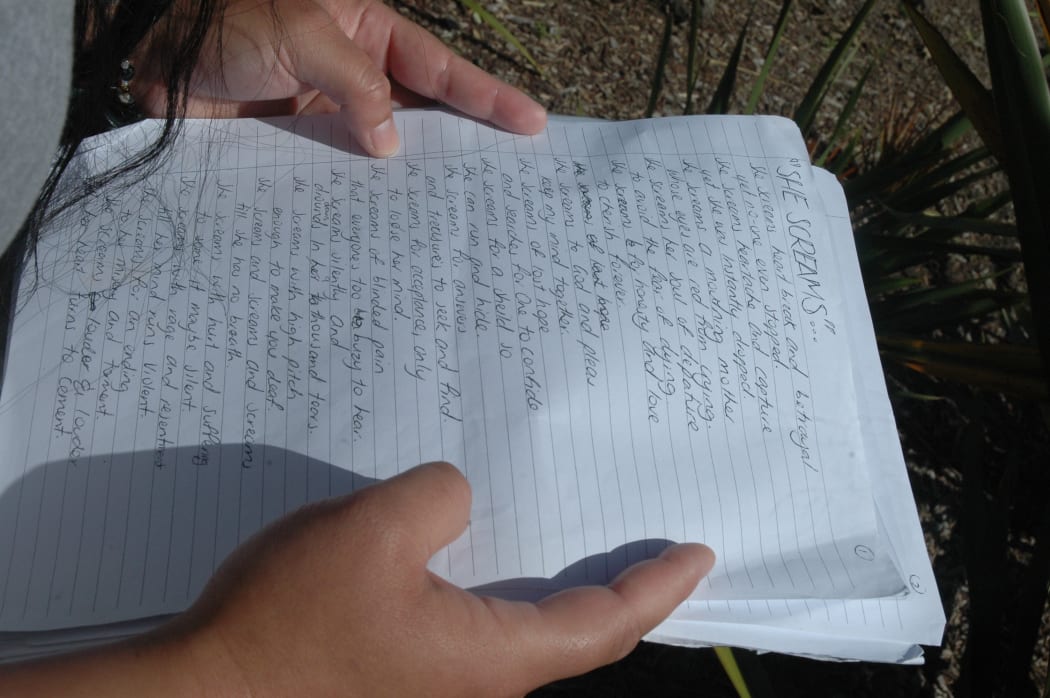 "SHE SCREAMS..."
She screams heart break and betrayal
yet no-one even stopped.
She screams heartache and capture
yet she was instantly dropped.
She screams a mourning mother
whose eyes are red from crying.
She screams her soul of departure
to avoid the fear of dying.
She screams for honour and love
to cherish forever.
She screams to God and pleas
keep my mind together.
She screams of lost hope
and searches for one to confide
She screams for a sheild so
she can run and hide.
She screams for answers
and treasures to seek and find.
She screams for acceptance, only
to loose her mind.
She screams of blinded pain
that everyones too buzy to hear.
She screams silently and
drowns in her thousand tears.
She screams with high pitch
enough to make you deaf
She screams and screams and screams
till she has no breath.
She screams with hurt and suffering
to some it maybe silent.
She screams with rage and resentment
till her mind runs violent.
She screams for an ending
to her misery and torment.
She screams louder & louder
her heart turns to cement.
①
②